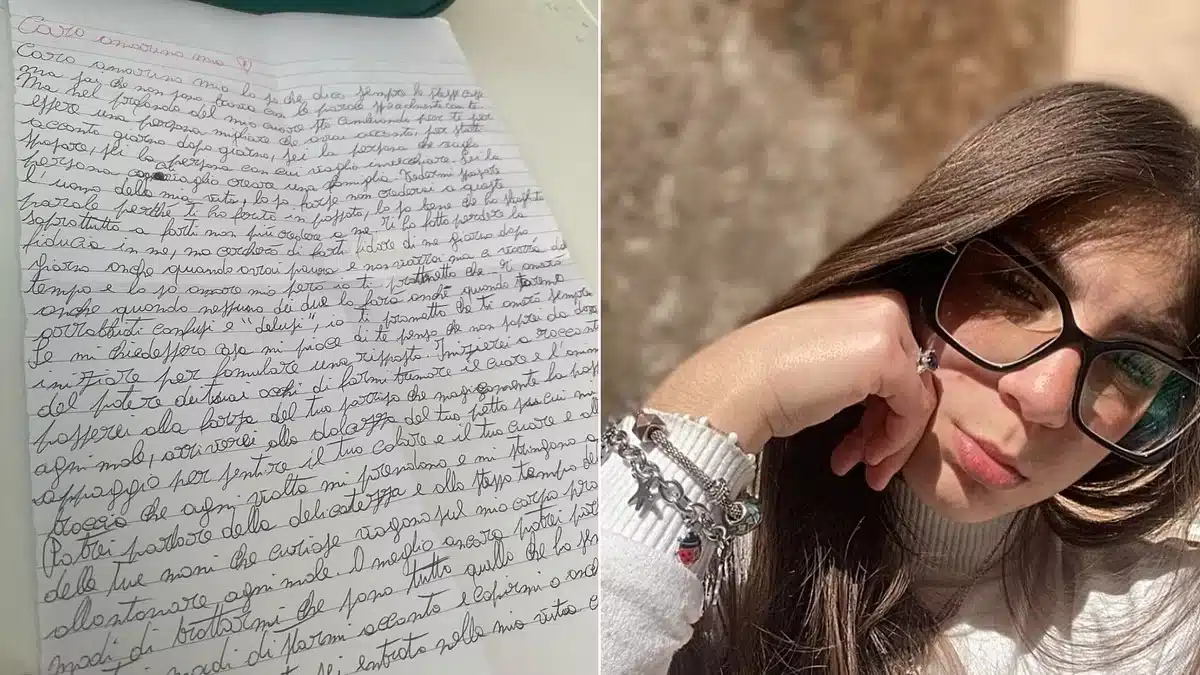 Caro amorino mio
Caro amorino mio lo so che dico sempre le stesse cose
ma sai che non sono brava con le parole specialmente con te
Ma nel profondo del mio cuore sto cambiando per te per
essere una persona migliore che avrai accanto, per starti
accanto giorno dopo giorno, sei la persona che voglio
sposare, sei la persona con cui voglio invecchiare. Sei la
persona voglio creare una famiglia.
l'uomo della mia vita, lo so forse non crederai a queste
parole perché ti ho ferito in passato, lo so bene che ho
soprattutto a farti non più credere a me ti ho fatto perdere la
fiducia in me, ma cercherò di farti fidare di me giorno dopo
giorno anche quando avrai paura e non vorrai ma ci vorrà del
tempo e lo so amore mio però io ti prometto che ti amerò
anche quando nessuno dei due lo farà anche quando saremo
arrabbiati confusi e "delusi", io ti prometto che ti amerò sempre
Se mi chiedessero cosa mi piace di te penso che non saprei da dove
iniziare per formulare una risposta. Inizierei a raccontare
del potere dei tuoi occhi di farmi tremare il cuore e l'anima
passerei alla forza del tuo sorriso che magicamente fa
ogni male, arriverei alla dolcezza del tuo petto su cui mi
appoggio per sentire il tuo calore e il tuo cuore e
braccia che ogni volta mi prendono e mi stringono
Potrei parlare della delicatezza e allo stesso tempo
delle tue mani che curiose vagano sul mio corpo
allontanare ogni male. O meglio ancora potrei
modi di trattarmi che sono tutto quello che
modi di starmi accanto e capirmi
sei entrato nella mia vita